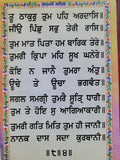 ਤੂ ਠਾਕੁਰੁ ਤੁਮ ਪਹਿ ਅਰਦਾਸਿ॥
ਜੀਉ ਪਿੰਡੁ ਸਭੁ ਤੇਰੀ ਰਾਸਿ॥
ਤੁਮ ਮਾਤ ਪਿਤਾ ਹਮ ਬਾਰਿਕ ਤੇਰੇ॥
ਤੁਮਰੀ ਕ੍ਰਿਪਾ ਮਹਿ ਸੂਖ ਘਨੇਰੇ॥
ਕੋਇ ਨ ਜਾਨੈ ਤੁਮਰਾ ਅੰਤੁ॥
ਊਚੇ ਤੇ ਊਚਾ ਭਗਵੰਤ॥
ਸਗਲ ਸਮਗ੍ਰੀ ਤੁਮਰੈ ਸੂਤ੍ਰਿ ਧਾਰੀ॥
ਤੁਮ ਤੇ ਹੋਇ ਸੁ ਆਗਿਆਕਾਰੀ॥
ਤੁਮਰੀ ਗਤਿ ਮਿਤਿ ਤੁਮ ਹੀ ਜਾਨੀ॥
ਨਾਨਕ ਦਾਸ ਸਦਾ ਕੁਰਬਾਨੀ॥
॥੮॥੪॥